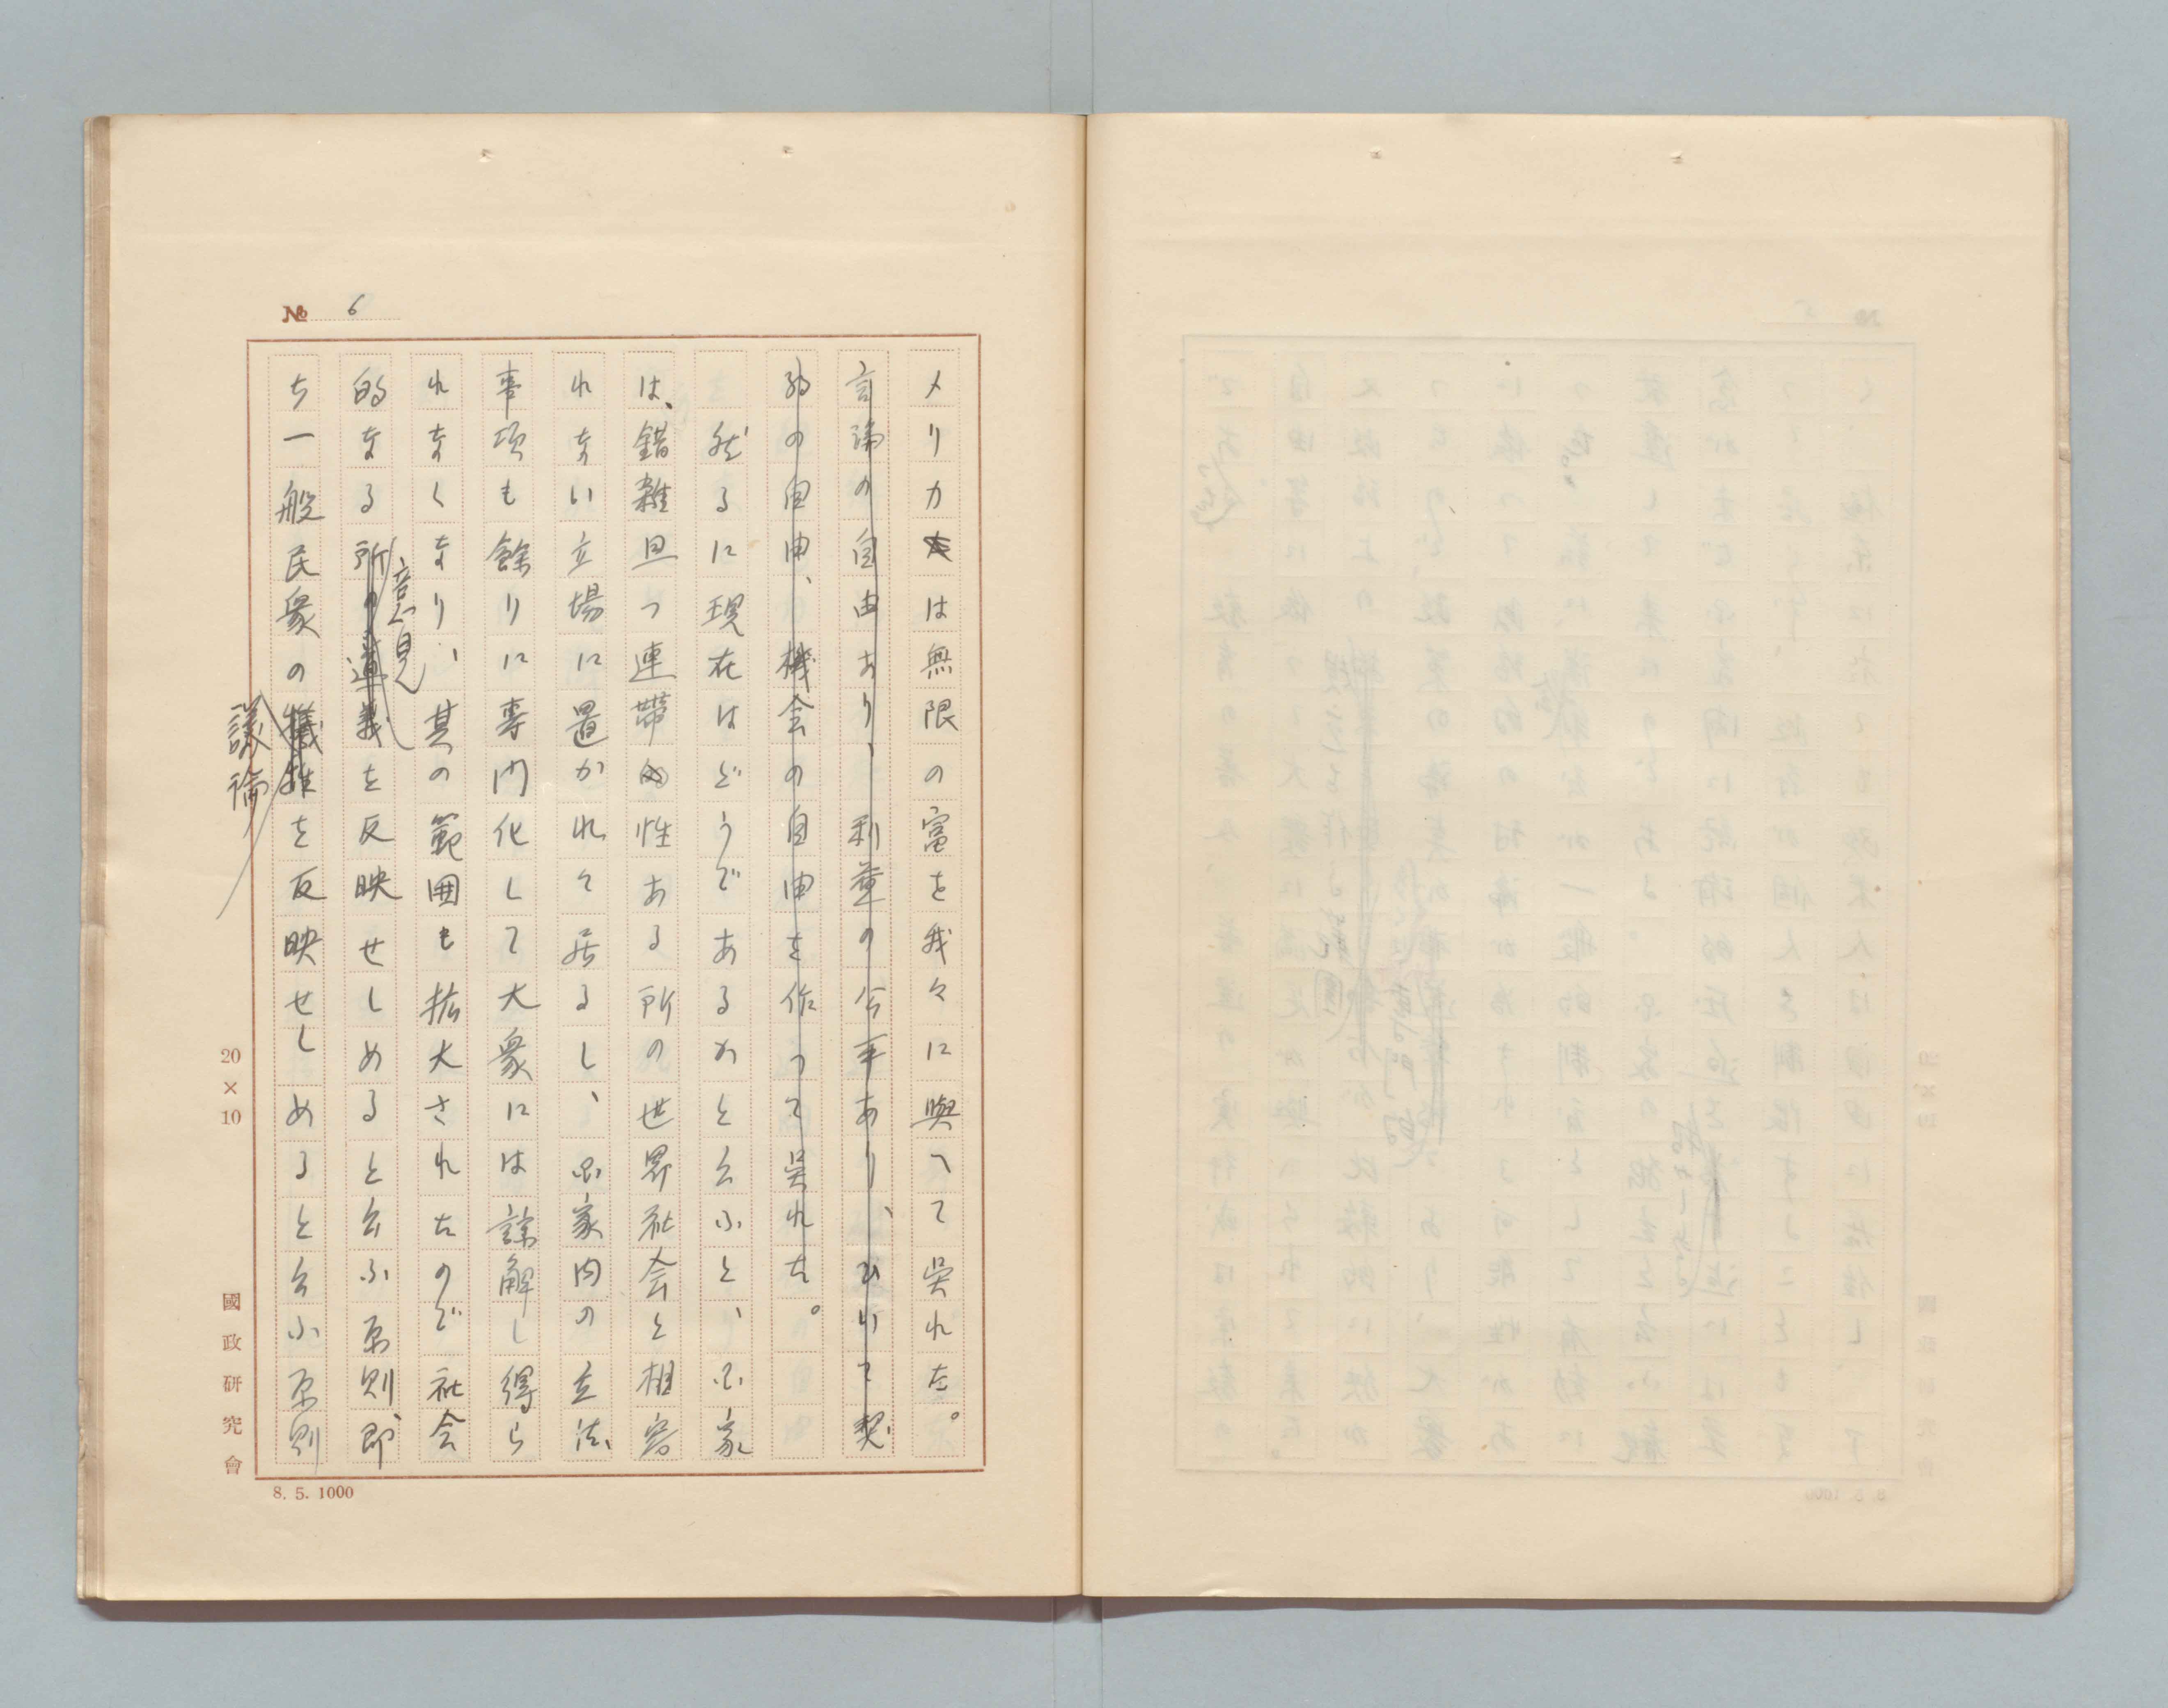 № 6
メリカは無限の富を我々に與へて呉れた。
言論の自由あり、利權の公平あり、ひいて契
約の自由、機会の自由を作つて呉れた。
然るに現在はどうであるかと云ふと、国家
は、錯雑且つ連帯性ある所の世界社会と相容
れない立場に置かれて居るし、国家内の立法
事項も餘りに専門化して大衆には諒解し得ら
れなくなり、其の範囲も拡大されたので社会
的なる所の道義を反映せしめると云ふ原則、即
意見
ち一般民衆の犠牲を反映せしめると云ふ原則
議論
20×10
國政研究會
8. 5. 1000